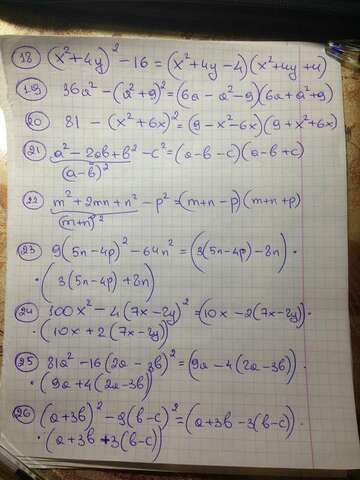 18 (x²+4y)² -16 = (x²+4y-4)(x²+4y+4)
19 36a² - (a²+9)² = (6a - a² - 9)(6a + a² + 9)
20 81 - (x²+6x)² = (9 - x² - 6x)(9 + x² + 6x)
21 a² - 2ab + b² - c² = (a-b-c)(a-b+c)
(a-b)²
22 m² + 2mn + n² - p² = (m+n-p)(m+n+p)
(m+n)²
23 9(5n-4p)² - 64n² = (3(5n-4p) - 8n) ·
· (3(5n-4p) + 8n)
24 100x² - 4(7x-2y)² = (10x - 2(7x-2y)) ·
· (10x + 2(7x-2y))
25 81a² - 16(2a-3b)² = (9a - 4(2a-3b)) ·
· (9a + 4(2a-3b))
26 (a+3b)² - 9(b-c)² = (a+3b - 3(b-c)) ·
· (a+3b + 3(b-c))